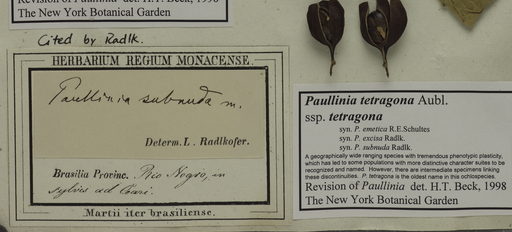 Revision of Paullinia det. H.T. Beck, 1998
The New York Botanical Garden
Cited by Radlk.
HERBARIUM REGIUM MONACENSE.
Paullinia subnuda m.
Determ. L. Radlkofer.
Brasilia Provinc. Rio Negro, in
sylvis ad Coari.
Martii iter brasiliense.
Paullinia tetragona Aubl.
ssp. tetragona
syn. P. emetica R.E.Schultes
syn. P. excisa Radlk.
syn. P. subnuda Radlk.
A geographically wide ranging species with tremendous phenotypic plasticity,
which has led to some populations with more distinctive character suites to be
recognized and named. However, there are intermediate specimens linking
these discontinuities. P. tetragona is the oldest name in this ochlospecies.
Revision of Paullinia det. H.T. Beck, 1998
The New York Botanical Garden